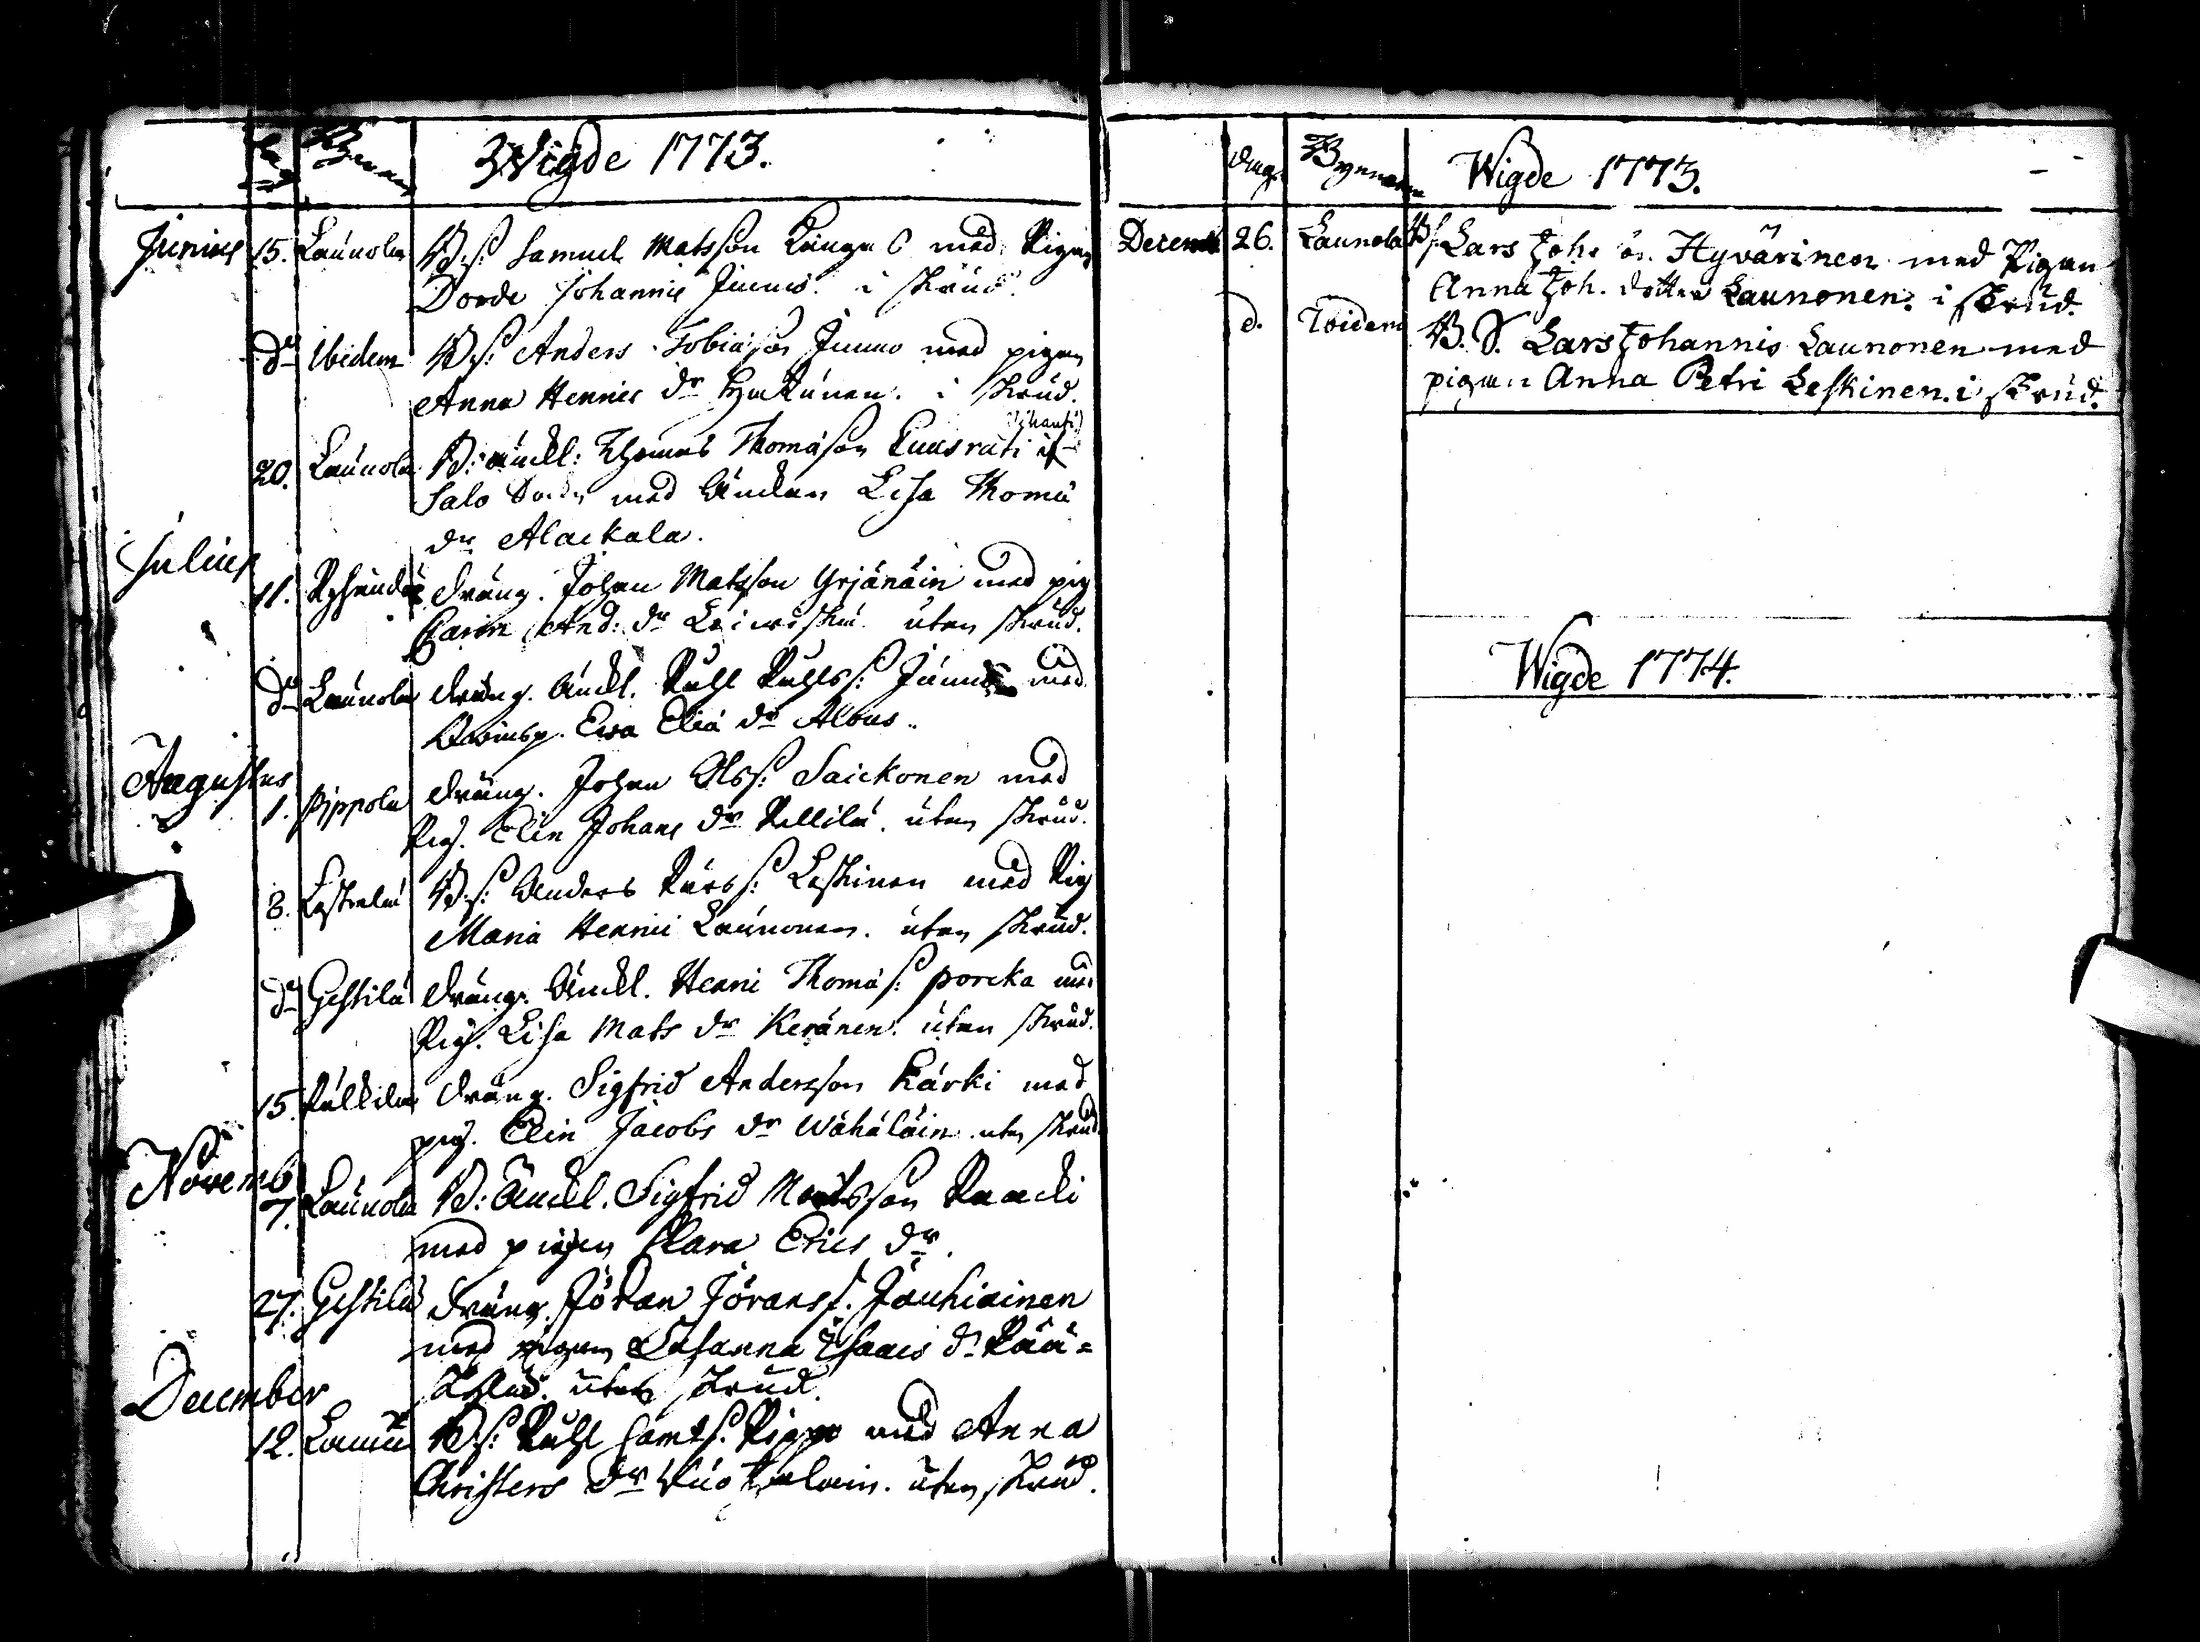 Dag Bynamn Wigde 1773.
Junius 15. Launola B.s: Samuel Matsson Kånga med Pigan
Dorde Johannis Junns. i skrud.
do Ibidem B.s: Anders Tobiasson Junno med pigan
Anna Hennis dr Hakunen. i skrud.
20. Launola B: änckl: Thomas Thomasson Kuusrati
Salo med Änckan Lisa Thomæ
dr Alaikala.
Julius
11. dräng. Johan Matsson Yrjänäin med pig
Carin And: dr uten skrud.
do Launola dräng. Änckl. Påhl Påhlss: med
Qwinsp. Ewa Eliæ dr Albus.
Augustus
1. Pippola dräng. Johan Olss: Saickonen med
Pig. Elin Johans dr Kellila. uten skrud.
8. Leskelä B.s: Anders Larss: Leskinen med Pig
Maria Hennii Launonen. uten skrud.
do Gestilä dräng. Änckl. Henric Thomæs: porcka med
Pig. Lisa Mats dr Keränen. uten skrud.
15. Pulkila dräng. Sigfrid Andersson Kärki med
pig. Elin Jacobs dr Wähäläin. uten skrud
Novemb
7. Launola B: Änckl. Sigfrid Matsson Raacki
med pigan Clara Erics dr.
27. Gestilä dräng. Jöran Jöranss. Jauhiainen
med pigan Susanna Isaacs dr
uten skrud.
December
12. B.s: Påhl Pippo med Anna
Christers dr uten skrud.
Dag. Bynamn Wigde 1773.
Decemb 26. Launola B.s. Lars Johs ön. Hyvärinen med Pigan
Anna Joh. dotter Launonen. i skrud.
d. Ibidem B. S. Lars Johannis Launonen med
pigan Anna Petri Leskinen. i skrud.
Wigde 1774.